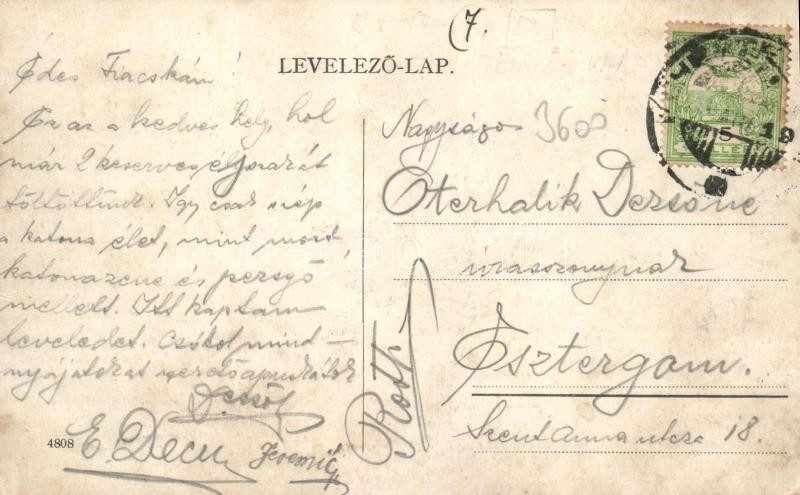 (7.
LEVELEZŐ-LAP.
Édes Fiacskám!
Ez az a kedves hely, hol
már 2 keserves éjszakát
töltöttünk. Így csak szép
a katona élet, mint most,
katonazene és pezsgő
mellett. Itt kaptam
leveledet. Csókol mind-
nyájatokat szerető apuskátok
Dezső
E. Decu
Jeremić
4808
Roth
3600
Nagyságos
Eterhalik Dezsőné
úrasszonynak
Esztergom.
Szent Anna utca 18.